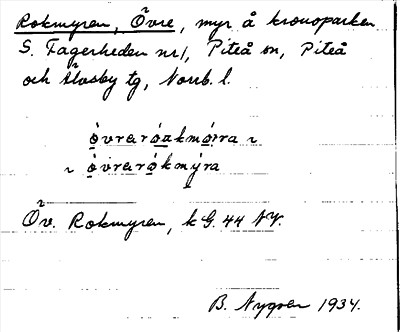 Rokmyren, Övre, myr å kronoparken
S. Fagerheden nr 1, Piteå sn, Piteå
och Älvsby tg, Norrb. l.
övrarøakmørra
övrarøkmýra
Öv. Rokmyren, k G. 44 NV.
B. Nygren 1934.